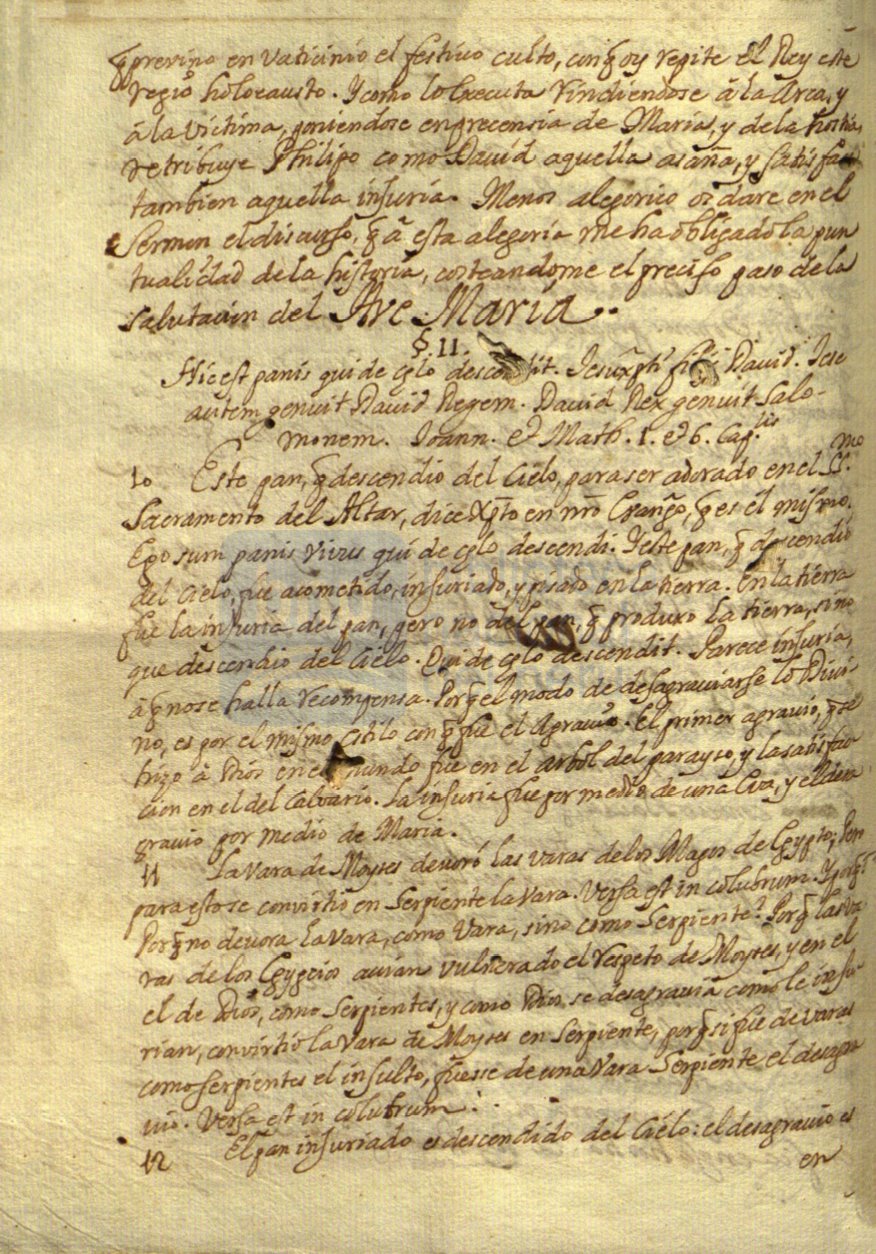 q̃ previno en vaticinio el festivo culto, con q̃ oy repite el Rey este
regio holocausto. Y como lo executa rindiendose â la Arca, y
â la Victima, poniendose en precensia de Maria, y de la hostia,
retribuye Philipo como David aquella asaña, y satisface
tambien aquella injuria. Menos alegorico os dare en el
Sermon el discurso, q̃ â esta alegoria me ha obligado la pun
tualidad de la historia, costeandome el preciso paso de la
salutacion del Ave Maria.
§. II.
Hic est panis qui de cęlo descendit. Iesu Xpti filij David. Iese
autem genuit David Regem. David Rex genuit Salo-
monem. Ioann. & Math. 1. & 6. Cap.lis
10 Este pan, q̃ descendio del Cielo, para ser adorado en el SS.mo
Sacramento del Altar, dice Xp̃to en nr̃o Evang̃o, q̃ es el mismo.
Ego sum panis vivus qui de cęlo descendi. Y este pan, q̃ descendio
del Cielo, fue acometido, injuriado, y pisado en la tierra. En la tierra
fue la injuria del pan, pero no del pan, q̃ produxo la tierra, sino
que descendio del Cielo. Qui de cęlo descendit. Parece injuria,
â q̃ no se halla recompensa. Porq̃ el modo de desagraviarse lo Divi-
no, es por el mismo estilo con q̃ fue el Agravio. El primer agravio, q̃ se
hizo â Dios en el mundo fue en el arbol del parayso, y la satisfac
cion en el del Calvario. La injuria fue por medio de una Eva, y el desa
gravio por medio de Maria.
11 La Vara de Moyses devoró las varas de los Magos de Egypto; Pero
para esto se convirtió en Serpiente la Vara. Versa est in colubrum. Y porq̃?
Porq̃ no devora la Vara, como Vara, sino como Serpiente? Porq̃ las Va
ras de los Egypcios avian vulnerado el respeto de Moyses, y en el
el de Dios, como Serpientes, y como Dios se desagravia como le inju
rian, convirtió la Vara de Moyses en Serpiente, porq̃ si fue de varas
como serpientes el insulto, fuesse de una Vara Serpiente el desagra
vio. Versa est in colubrum.
12 El pan injuriado es descendido del Cielo: el desagravio es
en